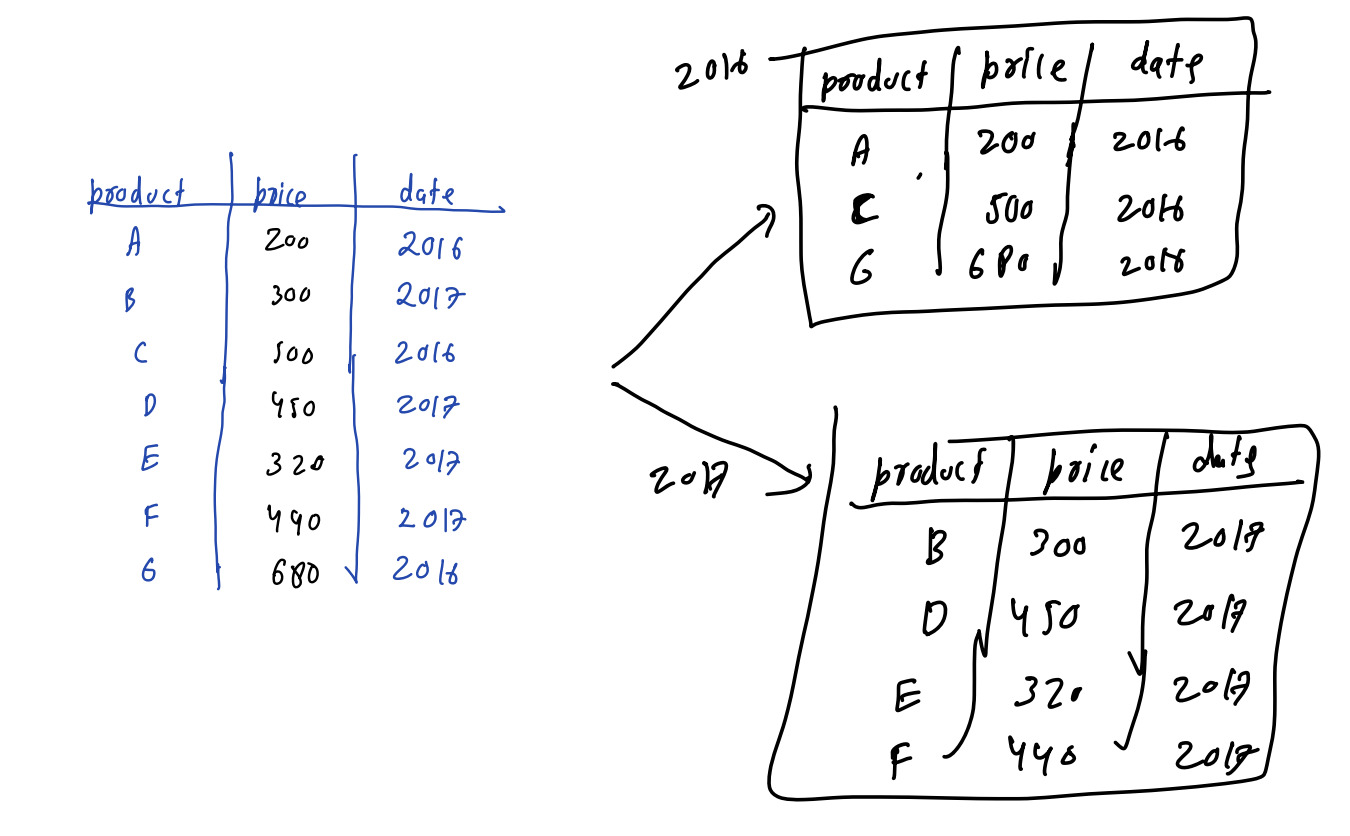 product price date
A 200 2016
B 300 2017
C 500 2016
D 450 2017
E 320 2017
F 490 2017
G 680 2016
2016
product price date
A 200 2016
C 500 2016
G 680 2016
2017
product price date
B 300 2017
D 450 2017
E 320 2017
F 440 2017